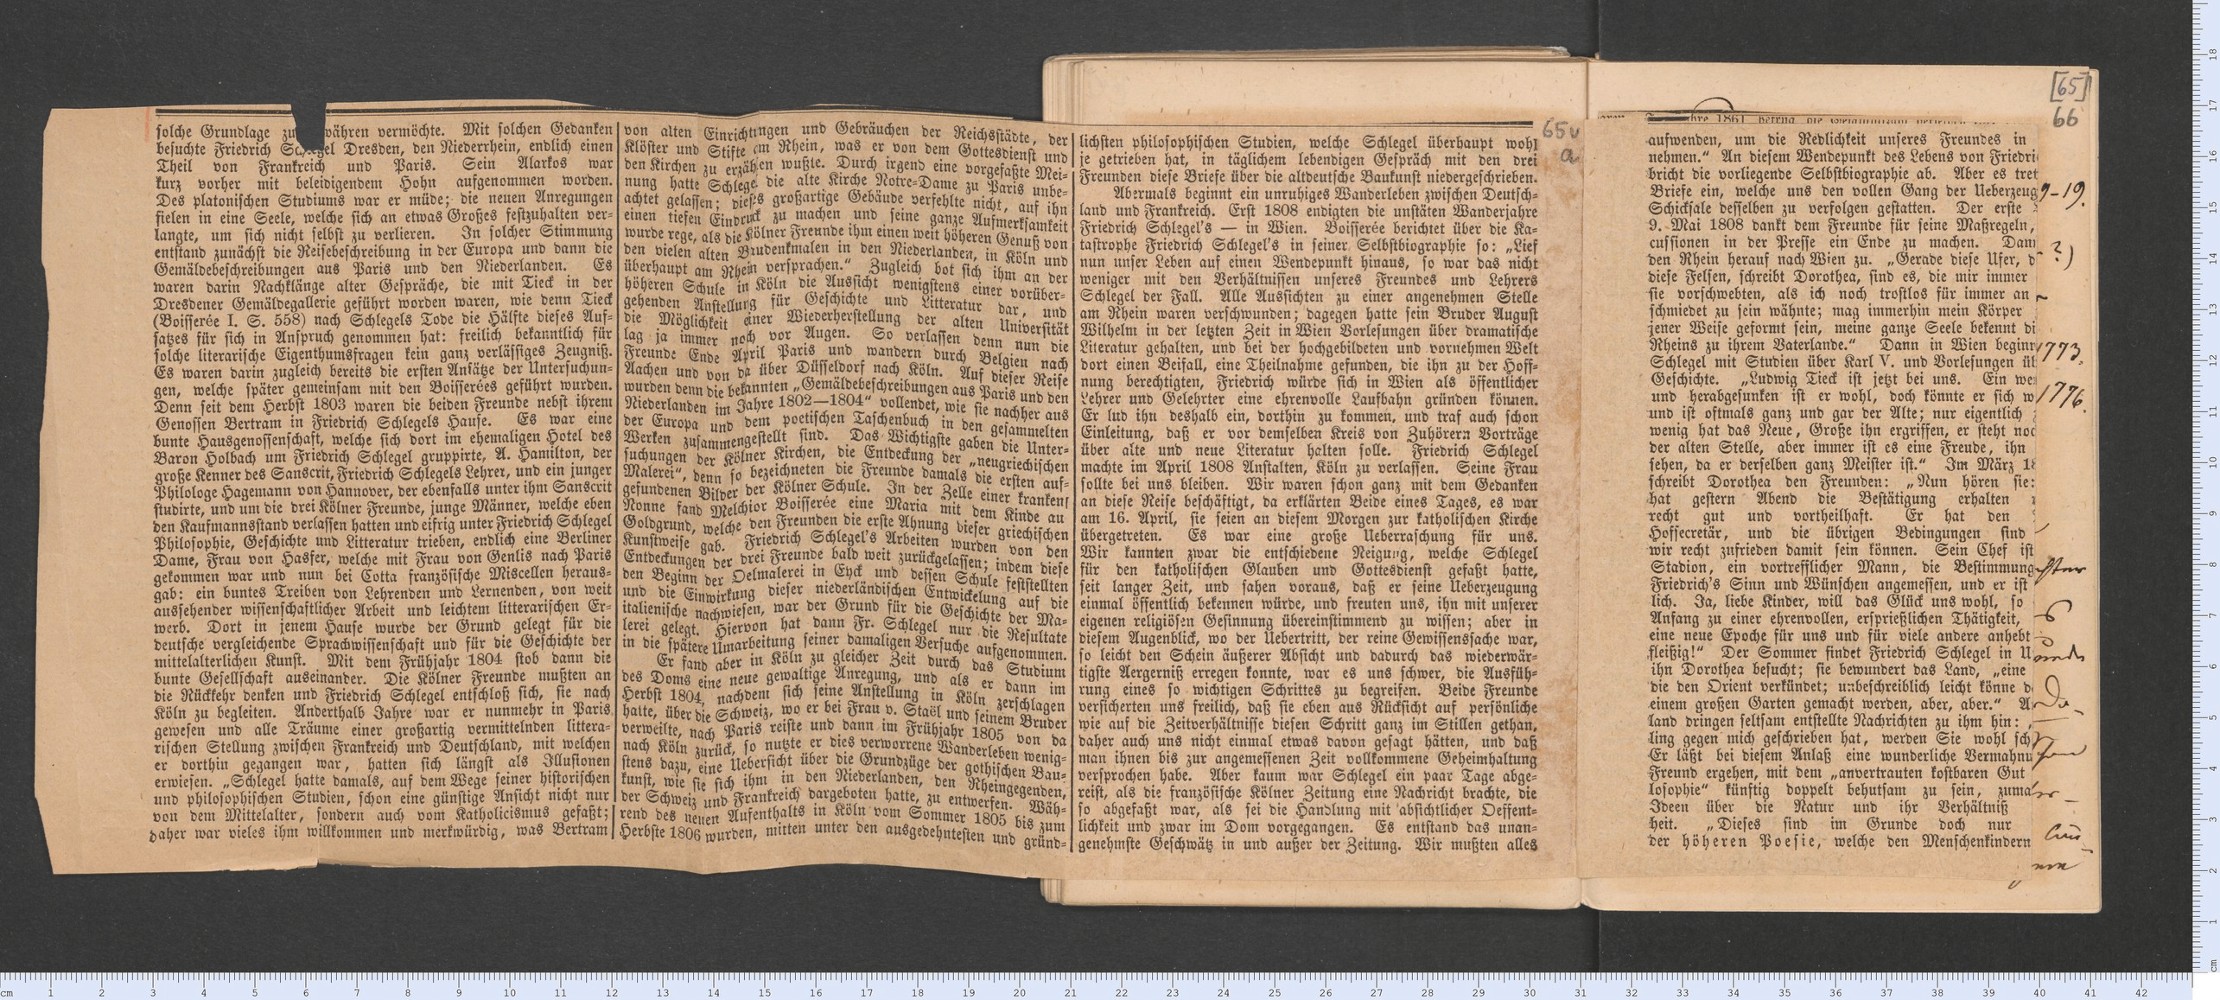 solche Grundlage zu währen vermöchte. Mit solchen Gedanken
besuchte Friedrich Schlegel Dresden, den Niederrhein, endlich einen
Theil von Frankreich und Paris. Sein Alarkos war
kurz vorher mit beleidigendem Hohn aufgenommen worden.
Des platonischen Studiums war er müde; die neuen Anregungen
fielen in eine Seele, welche sich an etwas Großes festzuhalten ver-
langte, um sich nicht selbst zu verlieren. In solcher Stimmung
entstand zunächst die Reisebeschreibung in der Europa und dann die
Gemäldebeschreibungen aus Paris und den Niederlanden. Es
waren darin Nachklänge alter Gespräche, die mit Tieck in der
Dresdener Gemäldegallerie geführt worden waren, wie denn Tieck
(Boisserée I. S. 558) nach Schlegels Tode die Hälfte dieses Auf-
satzes für sich in Anspruch genommen hat: freilich bekanntlich für
solche literarische Eigenthumsfragen kein ganz verlässiges Zeugniß.
Es waren darin zugleich bereits die ersten Ansätze der Untersuchun-
gen, welche später gemeinsam mit den Boisserées geführt wurden.
Denn seit dem Herbst 1803 waren die beiden Freunde nebst ihrem
Genossen Bertram in Friedrich Schlegels Hause. Es war eine
bunte Hausgenossenschaft, welche sich dort im ehemaligen Hotel des
Baron Holbach um Friedrich Schlegel gruppirte, A. Hamilton, der
große Kenner des Sanscrit, Friedrich Schlegels Lehrer, und ein junger
Philologe Hagemann von Hannover, der ebenfalls unter ihm Sanscrit
studirte, und um die drei Kölner Freunde, junge Männer, welche eben
den Kaufmannsstand verlassen hatten und eifrig unter Friedrich Schlegel
Philosophie, Geschichte und Litteratur trieben, endlich eine Berliner
Dame, Frau von Hasfer, welche mit Frau von Genlis nach Paris
gekommen war und nun bei Cotta französische Miscellen heraus-
gab: ein buntes Treiben von Lehrenden und Lernenden, von weit
aussehender wissenschaftlicher Arbeit und leichtem litterarischen Er-
werb. Dort in jenem Hause wurde der Grund gelegt für die
deutsche vergleichende Sprachwissenschaft und für die Geschichte der
mittelalterlichen Kunst. Mit dem Frühjahr 1804 stob dann die
bunte Gesellschaft auseinander. Die Kölner Freunde mußten an
die Rückkehr denken und Friedrich Schlegel entschloß sich, sie nach
Köln zu begleiten. Anderthalb Jahre war er nunmehr in Paris
gewesen und alle Träume einer großartig vermittelnden littera-
rischen Stellung zwischen Frankreich und Deutschland, mit welchen
er dorthin gegangen war, hatten sich längst als Illusionen
erwiesen. „Schlegel hatte damals, auf dem Wege seiner historischen
und philosophischen Studien, schon eine günstige Ansicht nicht nur
von dem Mittelalter, sondern auch vom Katholicismus gefaßt;
daher war vieles ihm willkommen und merkwürdig, was Bertram
von alten Einrichtungen und Gebräuchen der Reichsstädte, der
Klöster und Stifte am Rhein, was er von dem Gottesdienst und
den Kirchen zu erzählen wußte. Durch irgend eine vorgefaßte Mei-
nung hatte Schlegel die alte Kirche Notre-Dame zu Paris unbe-
achtet gelassen; dieses großartige Gebäude verfehlte nicht, auf ihn
einen tiefen Eindruck zu machen und seine ganze Aufmerksamkeit
wurde rege, als die Kölner Freunde ihm einen weit höheren Genuß von
den vielen alten Baudenkmalen in den Niederlanden, in Köln und
überhaupt am Rhein versprachen.“ Zugleich bot sich ihm an der
höheren Schule in Köln die Aussicht wenigstens einer vorüber-
gehenden Anstellung für Geschichte und Litteratur dar, und
die Möglichkeit einer Wiederherstellung der alten Universität
lag ja immer noch vor Augen. So verlassen denn nun die
Freunde Ende April Paris und wandern durch Belgien nach
Aachen und von da über Düsseldorf nach Köln. Auf dieser Reise
wurden denn die bekannten „Gemäldebeschreibungen aus Paris und den
Niederlanden im Jahre 1802—1804“ vollendet, wie sie nachher aus
der Europa und dem poetischen Taschenbuch in den gesammelten
Werken zusammengestellt sind. Das Wichtigste gaben die Unter-
suchungen der Kölner Kirchen, die Entdeckung der „neugriechischen
Malerei“, denn so bezeichneten die Freunde damals die ersten auf-
gefundenen Bilder der Kölner Schule. In der Zelle einer kranken
Nonne fand Melchior Boisserée eine Maria mit dem Kinde auf
Goldgrund, welche den Freunden die erste Ahnung dieser griechischen
Kunstweise gab. Friedrich Schlegel's Arbeiten wurden von den
Entdeckungen der drei Freunde bald weit zurückgelassen; indem diese
den Beginn der Oelmalerei in Eyck und dessen Schule feststellten
und die Einwirkung dieser niederländischen Entwickelung auf die
italienische nachwiesen, war der Grund für die Geschichte der Ma-
lerei gelegt. Hiervon hat dann Fr. Schlegel nur die Resultate
in die spätere Umarbeitung seiner damaligen Versuche aufgenommen.
Er fand aber in Köln zu gleicher Zeit durch das Studium
des Doms eine neue gewaltige Anregung, und als er dann im
Herbst 1804, nachdem sich seine Anstellung in Köln zerschlagen
hatte, über die Schweiz, wo er bei Frau v. Staël und seinem Bruder
verweilte, nach Paris reiste und dann im Frühjahr 1805 von da
nach Köln zurück, so nutzte er dies verworrene Wanderleben wenig-
stens dazu, eine Uebersicht über die Grundzüge der gothischen Bau-
kunst, wie sie sich ihm in den Niederlanden, den Rheingegenden,
der Schweiz und Frankreich dargeboten hatte, zu entwerfen. Wäh-
rend des neuen Aufenthalts in Köln vom Sommer 1805 bis zum
Herbste 1806 wurden, mitten unter den ausgedehntesten und gründ-
lichsten philosophischen Studien, welche Schlegel überhaupt wohl
je getrieben hat, in täglichem lebendigen Gespräch mit den drei
Freunden diese Briefe über die altdeutsche Baukunst niedergeschrieben.
Abermals beginnt ein unruhiges Wanderleben zwischen Deutsch-
land und Frankreich. Erst 1808 endigten die unstäten Wanderjahre
Friedrich Schlegel's — in Wien. Boisserée berichtet über die Ka-
tastrophe Friedrich Schlegel's in seiner Selbstbiographie so: „Lief
nun unser Leben auf einen Wendepunkt hinaus, so war das nicht
weniger mit den Verhältnissen unseres Freundes und Lehrers
Schlegel der Fall. Alle Aussichten zu einer angenehmen Stelle
am Rhein waren verschwunden; dagegen hatte sein Bruder August
Wilhelm in der letzten Zeit in Wien Vorlesungen über dramatische
Literatur gehalten, und bei der hochgebildeten und vornehmen Welt
dort einen Beifall, eine Theilnahme gefunden, die ihn zu der Hoff-
nung berechtigten, Friedrich würde sich in Wien als öffentlicher
Lehrer und Gelehrter eine ehrenvolle Laufbahn gründen können.
Er lud ihn deshalb ein, dorthin zu kommen, und traf auch schon
Einleitung, daß er vor demselben Kreis von Zuhörern Vorträge
über alte und neue Literatur halten solle. Friedrich Schlegel
machte im April 1808 Anstalten, Köln zu verlassen. Seine Frau
sollte bei uns bleiben. Wir waren schon ganz mit dem Gedanken
an diese Reise beschäftigt, da erklärten Beide eines Tages, es war
am 16. April, sie seien an diesem Morgen zur katholischen Kirche
übergetreten. Es war eine große Ueberraschung für uns.
Wir kannten zwar die entschiedene Neigung, welche Schlegel
für den katholischen Glauben und Gottesdienst gefaßt hatte,
seit langer Zeit, und sahen voraus, daß er seine Ueberzeugung
einmal öffentlich bekennen würde, und freuten uns, ihn mit unserer
eigenen religiösen Gesinnung übereinstimmend zu wissen; aber in
diesem Augenblick, wo der Uebertritt, der reine Gewissenssache war,
so leicht den Schein äußerer Absicht und dadurch das wiederwär-
tigste Aergerniß erregen konnte, war es uns schwer, die Ausfüh-
rung eines so wichtigen Schrittes zu begreifen. Beide Freunde
versicherten uns freilich, daß sie eben aus Rücksicht auf persönliche
wie auf die Zeitverhältnisse diesen Schritt ganz im Stillen gethan,
daher auch uns nicht einmal etwas davon gesagt hätten, und daß
man ihnen bis zur angemessenen Zeit vollkommene Geheimhaltung
versprochen habe. Aber kaum war Schlegel ein paar Tage abge-
reist, als die französische Kölner Zeitung eine Nachricht brachte, die
so abgefaßt war, als sei die Handlung mit absichtlicher Oeffent-
lichkeit und zwar im Dom vorgegangen. Es entstand das unan-
genehmste Geschwätz in und außer der Zeitung. Wir mußten alles
65v
a
[65]
66
aufwenden, um die Redlichkeit unseres Freundes in
nehmen.“ An diesem Wendepunkt des Lebens von Friedri
bricht die vorliegende Selbstbiographie ab. Aber es tret
Briefe ein, welche uns den vollen Gang der Ueberzeug
Schicksale desselben zu verfolgen gestatten. Der erste
9. Mai 1808 dankt dem Freunde für seine Maßregeln,
cussionen in der Presse ein Ende zu machen. Dann
den Rhein herauf nach Wien zu. „Gerade diese Ufer, d
diese Felsen, schreibt Dorothea, sind es, die mir immer
sie vorschwebten, als ich noch trostlos für immer an
schmiedet zu sein wähnte; mag immerhin mein Körper
jener Weise geformt sein, meine ganze Seele bekennt di
Rheins zu ihrem Vaterlande.“ Dann in Wien beginn
Schlegel mit Studien über Karl V. und Vorlesungen üb
Geschichte. „Ludwig Tieck ist jetzt bei uns. Ein we
und herabgesunken ist er wohl, doch könnte er sich w
und ist oftmals ganz und gar der Alte; nur eigentlich
wenig hat das Neue, Große ihn ergriffen, er steht noc
der alten Stelle, aber immer ist es eine Freude, ihn
sehen, da er derselben ganz Meister ist.“ Im März 18
schreibt Dorothea den Freunden: „Nun hören sie:
hat gestern Abend die Bestätigung erhalten
recht gut und vortheilhaft. Er hat den
Hofsecretär, und die übrigen Bedingungen sind
wir recht zufrieden damit sein können. Sein Chef ist
Stadion, ein vortrefflicher Mann, die Bestimmung
Friedrich's Sinn und Wünschen angemessen, und er ist
lich. Ja, liebe Kinder, will das Glück uns wohl, so
Anfang zu einer ehrenvollen, ersprießlichen Thätigkeit,
eine neue Epoche für uns und für viele andere anhebt
fleißig!“ Der Sommer findet Friedrich Schlegel in U
ihn Dorothea besucht; sie bewundert das Land, „eine
die den Orient verkündet; unbeschreiblich leicht könne d
einem großen Garten gemacht werden, aber, aber.“ A
land dringen seltsam entstellte Nachrichten zu ihm hin:
ling gegen mich geschrieben hat, werden Sie wohl sch
Er läßt bei diesem Anlaß eine wunderliche Vermahnu
Freund ergehen, mit dem „anvertrauten kostbaren Gut
losophie“ künftig doppelt behutsam zu sein, zuma
Ideen über die Natur und ihr Verhältniß
heit. „Dieses sind im Grunde doch nur
der höheren Poesie, welche den Menschenkindern
9-19.
?)
1773.
1776.